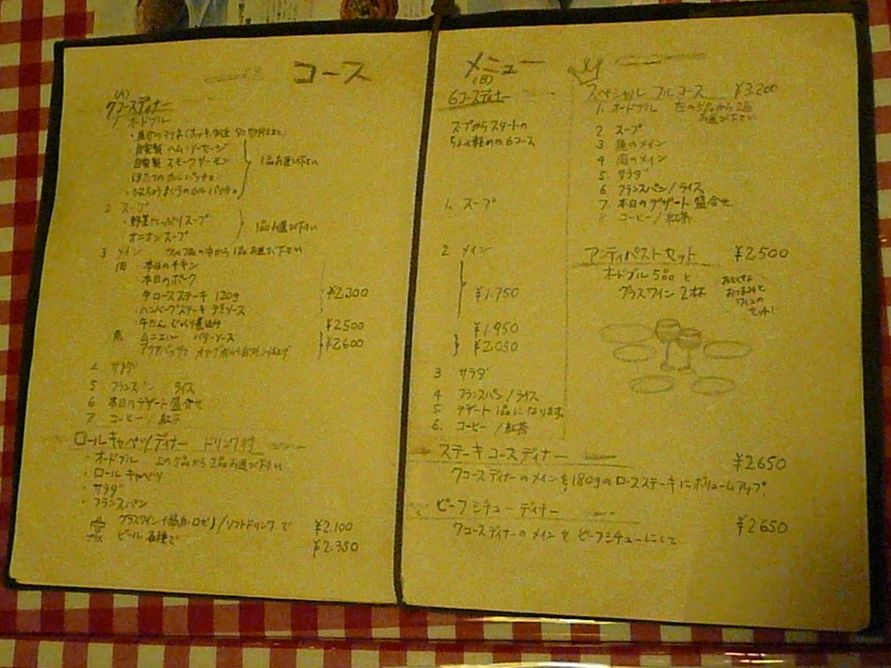 コース
(A)
7コースディナー
1 オードブル
自家製 ハム・ソーセージ
自家製 スモークサーモン
ほたてのカルパッチョ
1品お選び下さい
2 スープ
・野菜たっぷりスープ
オニオンスープ
1品お選び下さい
3 メイン 次の7品の中から1品お選び下さい
肉 本日のチキン
本日のポーク
牛ロースステーキ 120g
ハンバーグステーキ デミソース
¥2300
牛たん じっくり煮込み ¥2500
魚 ムニエル バターソース
アクアパッツァ
¥2600
4 サラダ
5 フランスパン / ライス
6 本日のデザート盛合せ
7 コーヒー / 紅茶
ロールキャベツディナー ドリンク付
・オードブル 上の5品から2品お選び下さい
・ロールキャベツ
・サラダ
・フランスパン
グラスワイン (赤・白・ロゼ) / ソフトドリンクで ¥2.100
ビール各種で ¥2.350
メニュー
(B)
6コースディナー
スープからスタートの
ちょっと軽めの6コース
1. スープ
2 メイン
¥1.750
¥1.950
¥2.050
3 サラダ
4 フランスパン / ライス
5 デザート1品になります
6. コーヒー / 紅茶
スペシャル フルコース ¥3.200
1. オードブル 左の5品から2品
お選び下さい
2 スープ
3 魚のメイン
4 肉のメイン
5. サラダ
6 フランスパン / ライス
7. 本日のデザート盛合せ
8 コーヒー / 紅茶
アンティパストセット ¥2500
オードブル 5品と
グラスワイン 2杯
おつまみと
ワインの
セット!
ステーキコースディナー ¥2650
7コースディナーのメインを180gのロースステーキにボリュームアップ!
ビーフシチューディナー ¥2650
7コースディナーのメインをビーフシチューにして